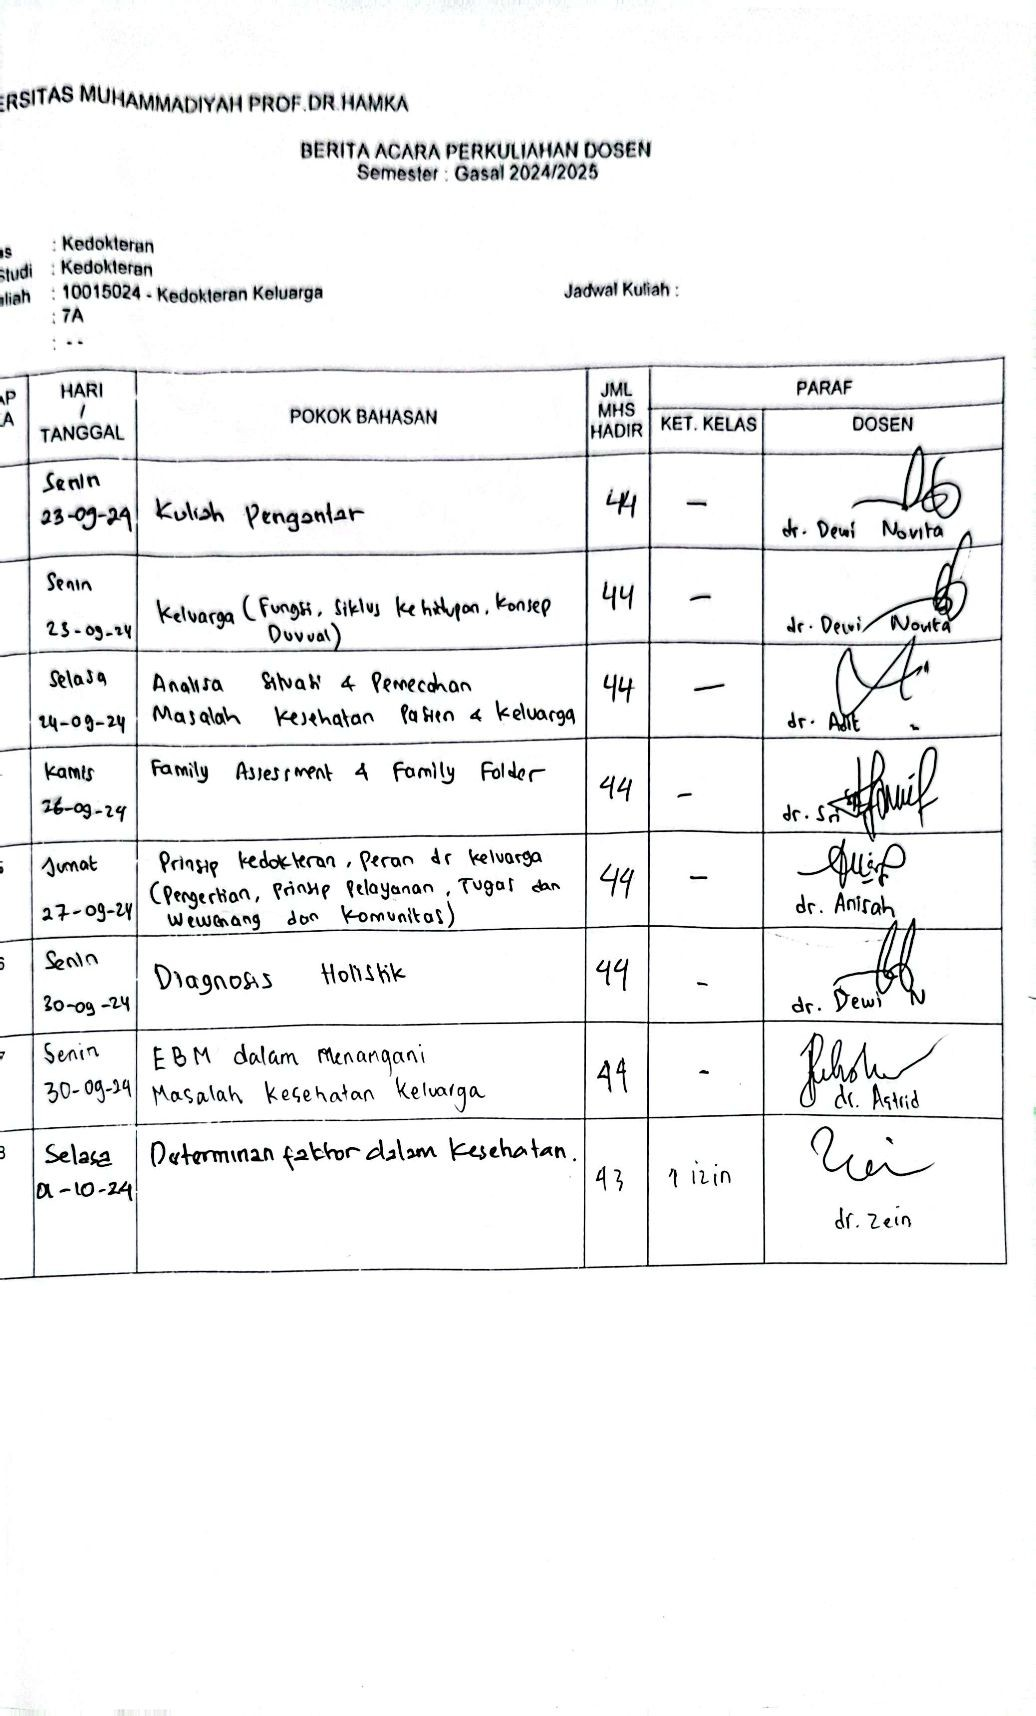 ERSITAS MUHAMMADIYAH PROF.DR.HAMKA
BERITA ACARA PERKULIAHAN DOSEN
Semester : Gasal 2024/2025
as : Kedokteran
Studi : Kedokteran
uliah : 10015024 - Kedokteran Keluarga
Jadwal Kuliah :
: 7A
: --
AP
KA
HARI / TANGGAL
POKOK BAHASAN
JML MHS HADIR
PARAF
KET. KELAS
DOSEN
Senin
23-09-24
Kuliah Pengantar
44
-
dr. Dewi Novita
Senin
23-09-24
Keluarga (Fungsi, Siklus Kehidupan, Konsep
Duvval)
44
-
dr. Dewi Novita
Selasa
24-09-24
Analisa Situasi & Pemecahan
Masalah Kesehatan Pasien & Keluarga
44
-
dr. Adit
Kamis
26-09-24
Family Assessment & Family Folder
44
-
dr. Sri
5
Jumat
27-09-24
Prinsip Kedokteran, Peran dr keluarga
(Pengertian, Prinsip Pelayanan, Tugas dan
Wewenang dan Komunitas)
44
-
dr. Anisah
6
Senin
30-09-24
Diagnosis Holistik
44
-
dr. Dewi N
7
Senin
30-09-24
EBM dalam Menangani
Masalah Kesehatan Keluarga
44
-
dr. Astrid
8
Selasa
01-10-24
Determinan faktor dalam Kesehatan.
43
1 izin
dr. Zein